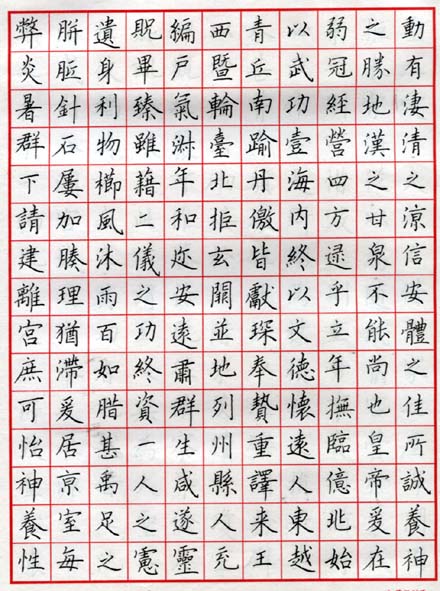 動有淒清之涼信安體之佳所誠養神
之勝地漢之甘泉不能尚也皇帝爰在
弱冠經營四方逮乎立年撫臨億兆始
以武功壹海內終以文德懷遠人東越
青丘南踰丹徼皆獻琛奉贄重譯来王
西暨輪臺北拒玄闕並地列州縣人充
編戶氣淑年和迩安遠肅群生咸遂靈
貺畢臻雖藉二儀之功終資一人之慮
遺身利物櫛風沐雨百如腊甚禹足之
胼胝針石屢加腠理猶滯爰居京室每
弊炎暑群下請建離宮庶可怡神養性